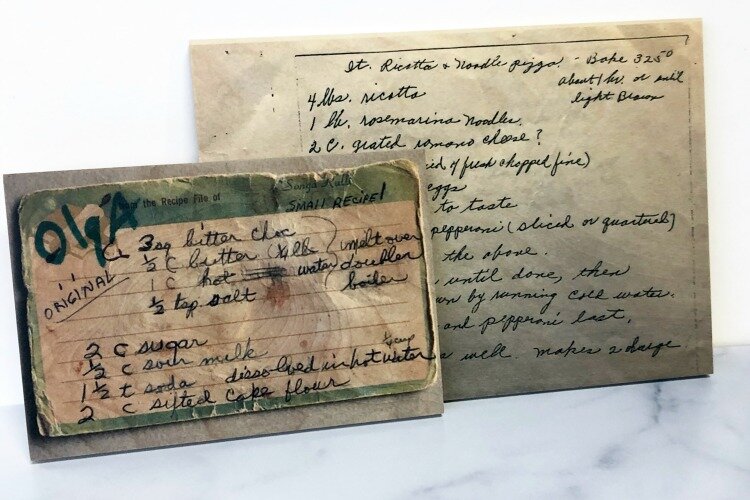 It. Ricotta & Noodle pizza - Bake 325°
about 1 hr. or until
light Brown
4 lbs. ricotta
1 lb. rosemarina Noodles.
2 C. grated romano cheese?
fresh chopped fine)
eggs
to taste
pepperoni (sliced or quartered)
the above.
until done, then
by running cold water.
and pepperoni last.
well. makes 2 large
the Recipe File of
SMALL RECIPE!
Olga
ORIGINAL
3 sq bitter choc
½ C butter (¼ lb) melt over
1 C hot water doubler
½ tsp salt boiler
2 C sugar
½ C sour milk
1 ½ t soda dissolved in hot water ¼ cup
2 C sifted cake flour